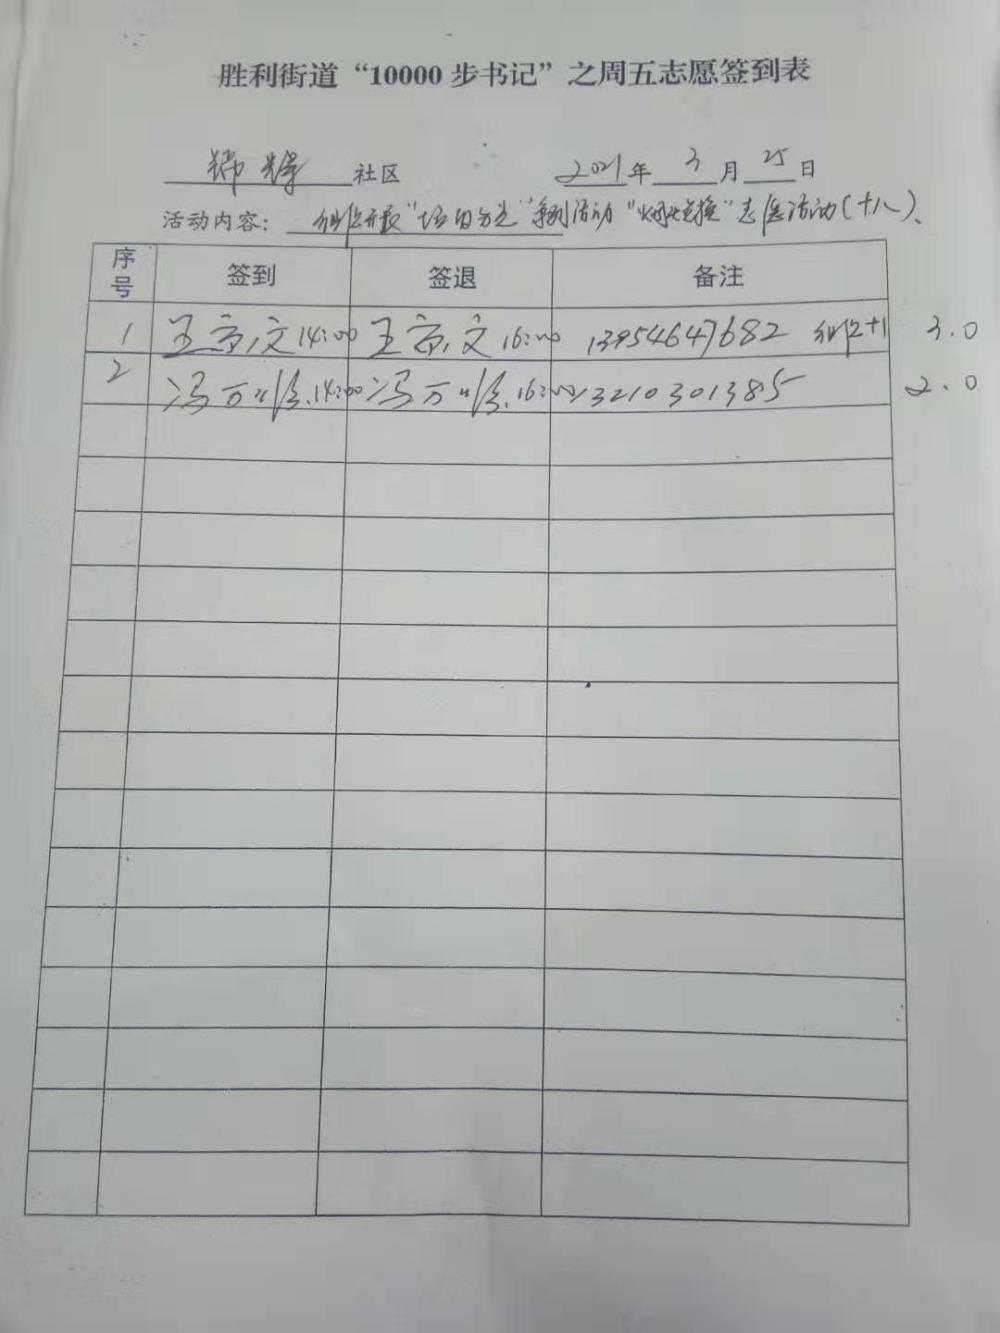 胜利街道“10000步书记”之周五志愿签到表
锦辉社区 2021年3月25日
活动内容： “垃圾分类” 活动 “兑换” 志愿活动（十八）、
序号 签到 签退 备注
1 王立文 14:00 王立文 16:00 13954647682 +1 3.0
2 冯万 14:00 冯万 16:00 13210301385 2.0